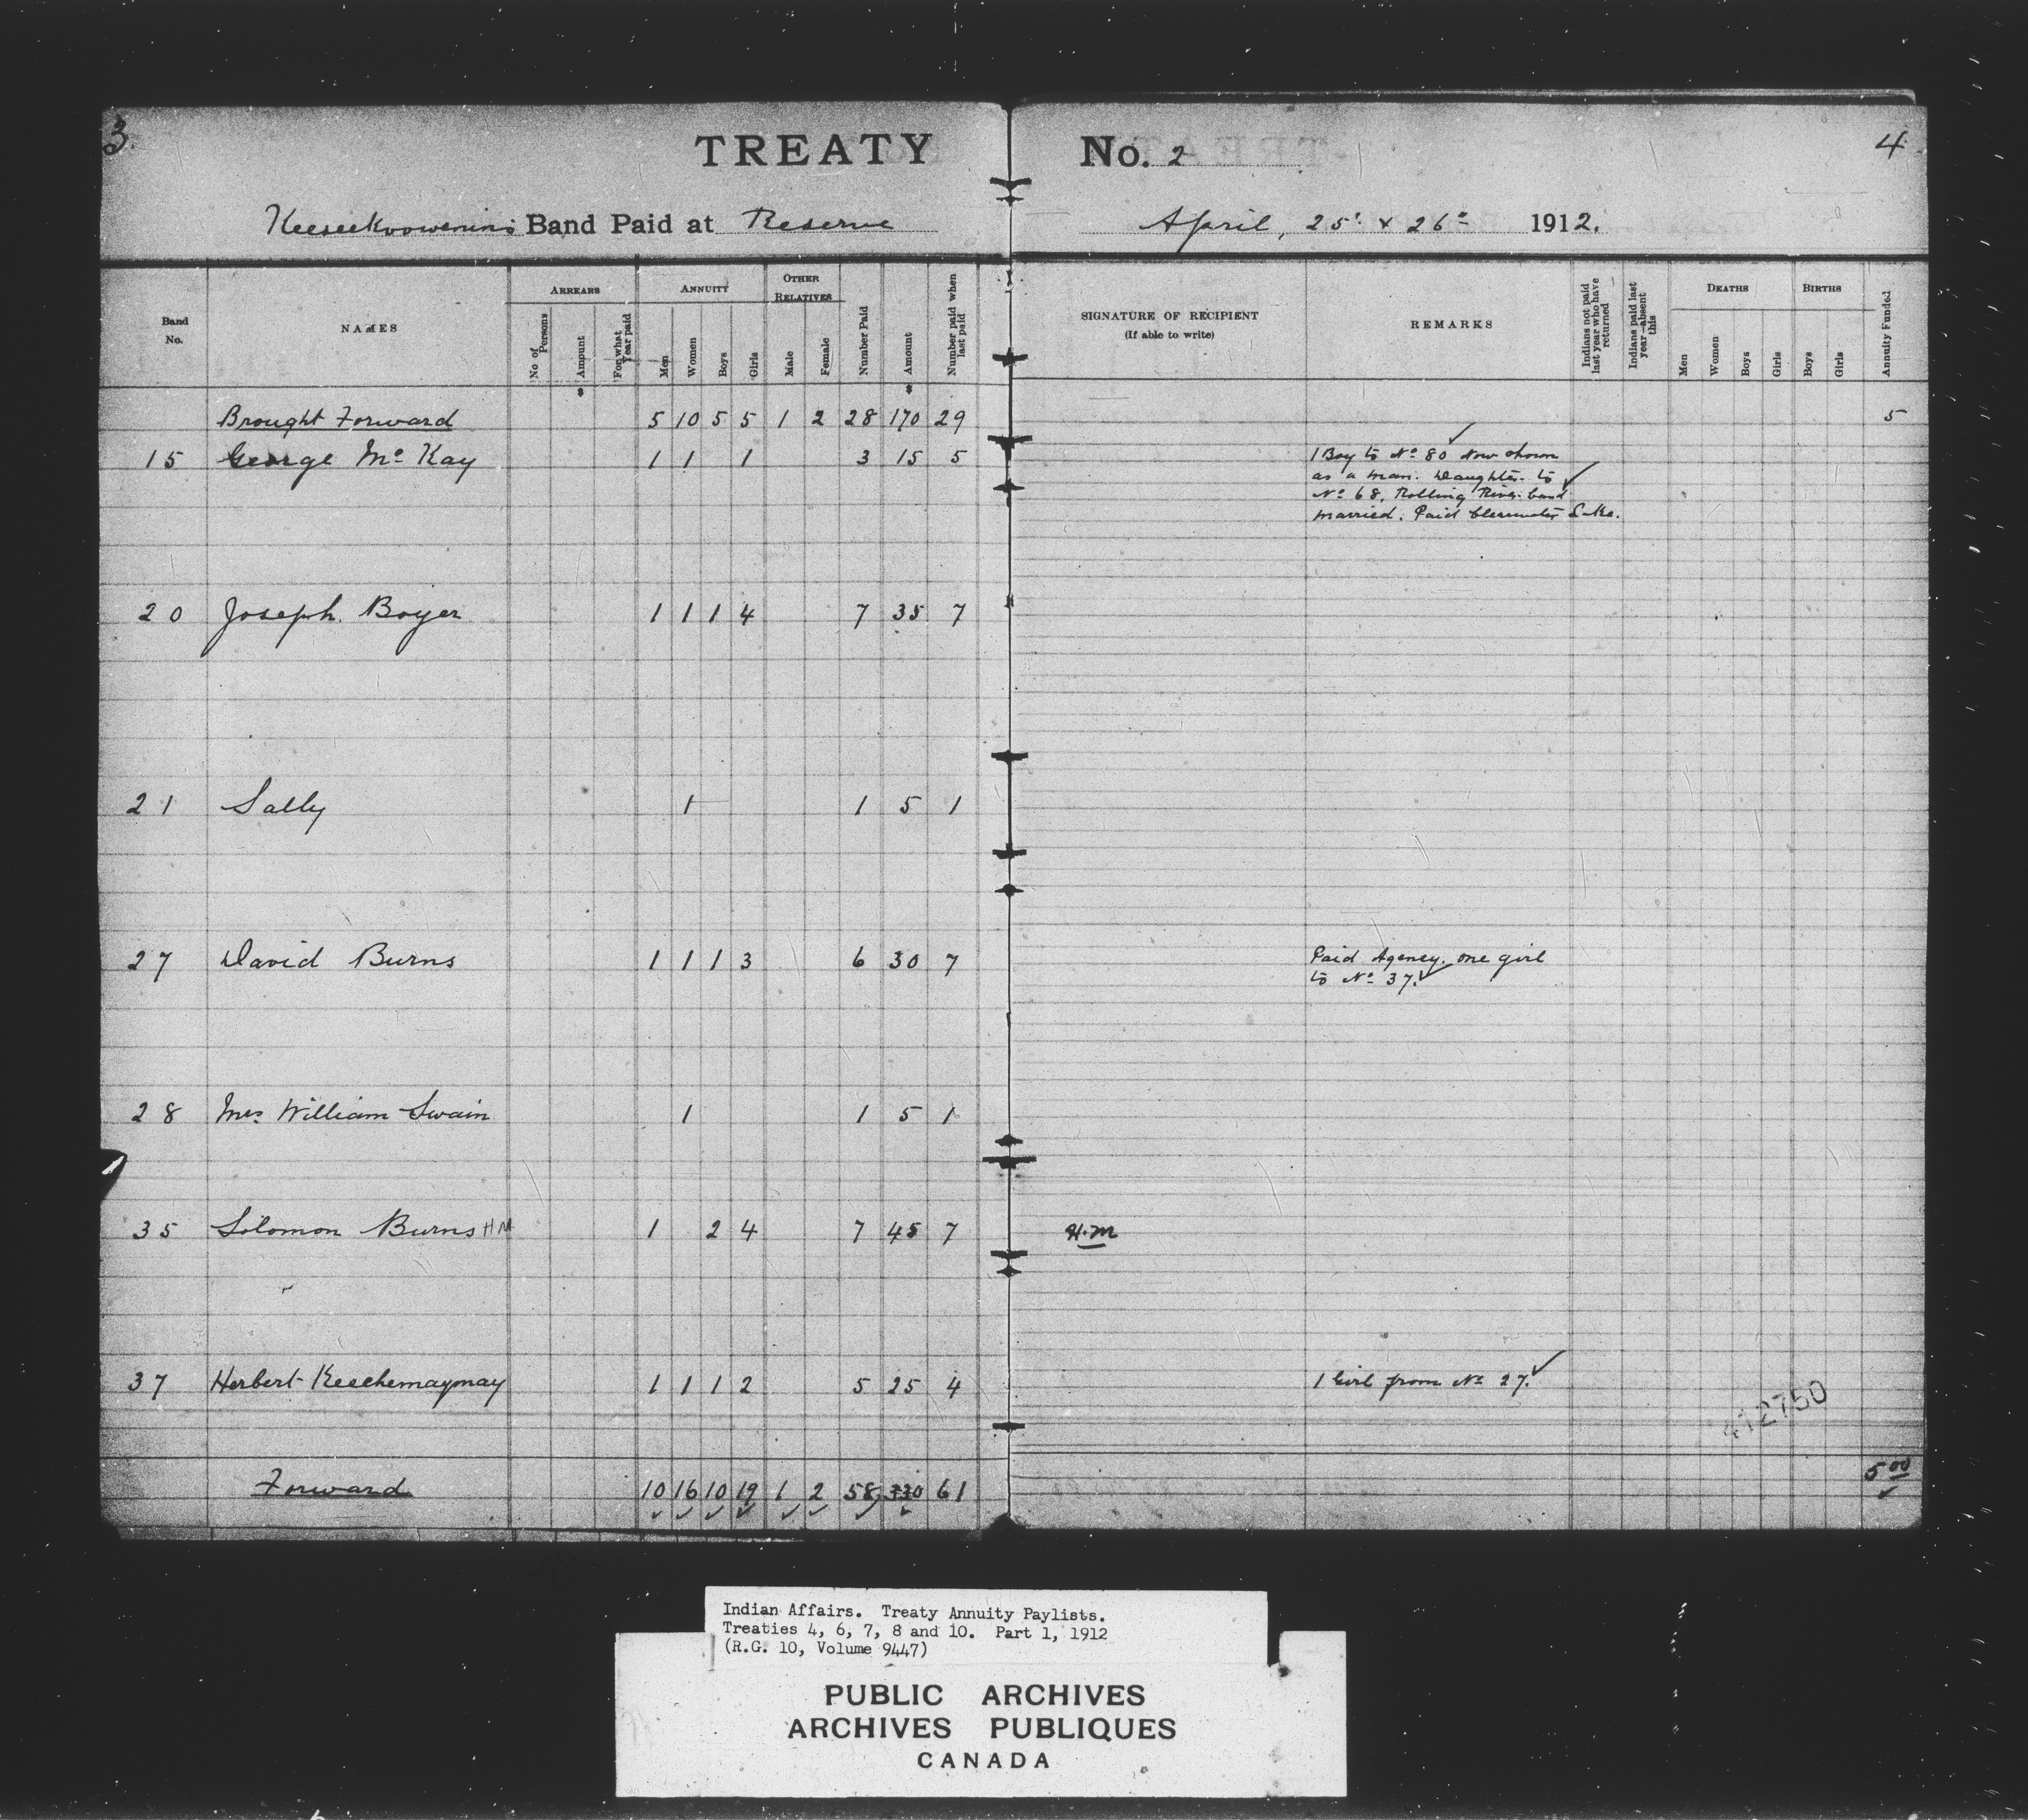 3.
TREATY No. 2
4
Keeseekoowenins Band Paid at Reserve April, 25th & 26th 1912.
Band No. NAMES ARREARS No of Persons Amount For what Year paid ANNUITY Men Women Boys Girls OTHER RELATIVES Male Female Number Paid Amount Number paid when last paid SIGNATURE OF RECIPIENT (If able to write) REMARKS Indians not paid last year who have returned Indians paid last year—absent this DEATHS Men Women Boys Girls BIRTHS Boys Girls Annuity Funded
$ $
Brought Forward 5 10 5 5 1 2 28 170 29 5
15 George Mc Kay 1 1 1 3 15 5 1 Boy to No 80 Now shown
as a man. Daughter to
No 68, Rolling River band
married. Paid Clearwater Lake.
20 Joseph Boyer 1 1 1 4 7 35 7
21 Sally 1 1 5 1
27 David Burns 1 1 1 3 6 30 7 Paid Agency. one girl
to No 37.
28 Mrs William Swain 1 1 5 1
35 Solomon Burns HM 1 2 4 7 45 7 H.M
37 Herbert Keechemaymay 1 1 1 2 5 25 4 1 Girl from No 27.
Forward 10 16 10 19 1 2 58 330 61 5 00
Indian Affairs. Treaty Annuity Paylists.
Treaties 4, 6, 7, 8 and 10. Part 1, 1912
(R.G. 10, Volume 9447)
PUBLIC ARCHIVES
ARCHIVES PUBLIQUES
CANADA